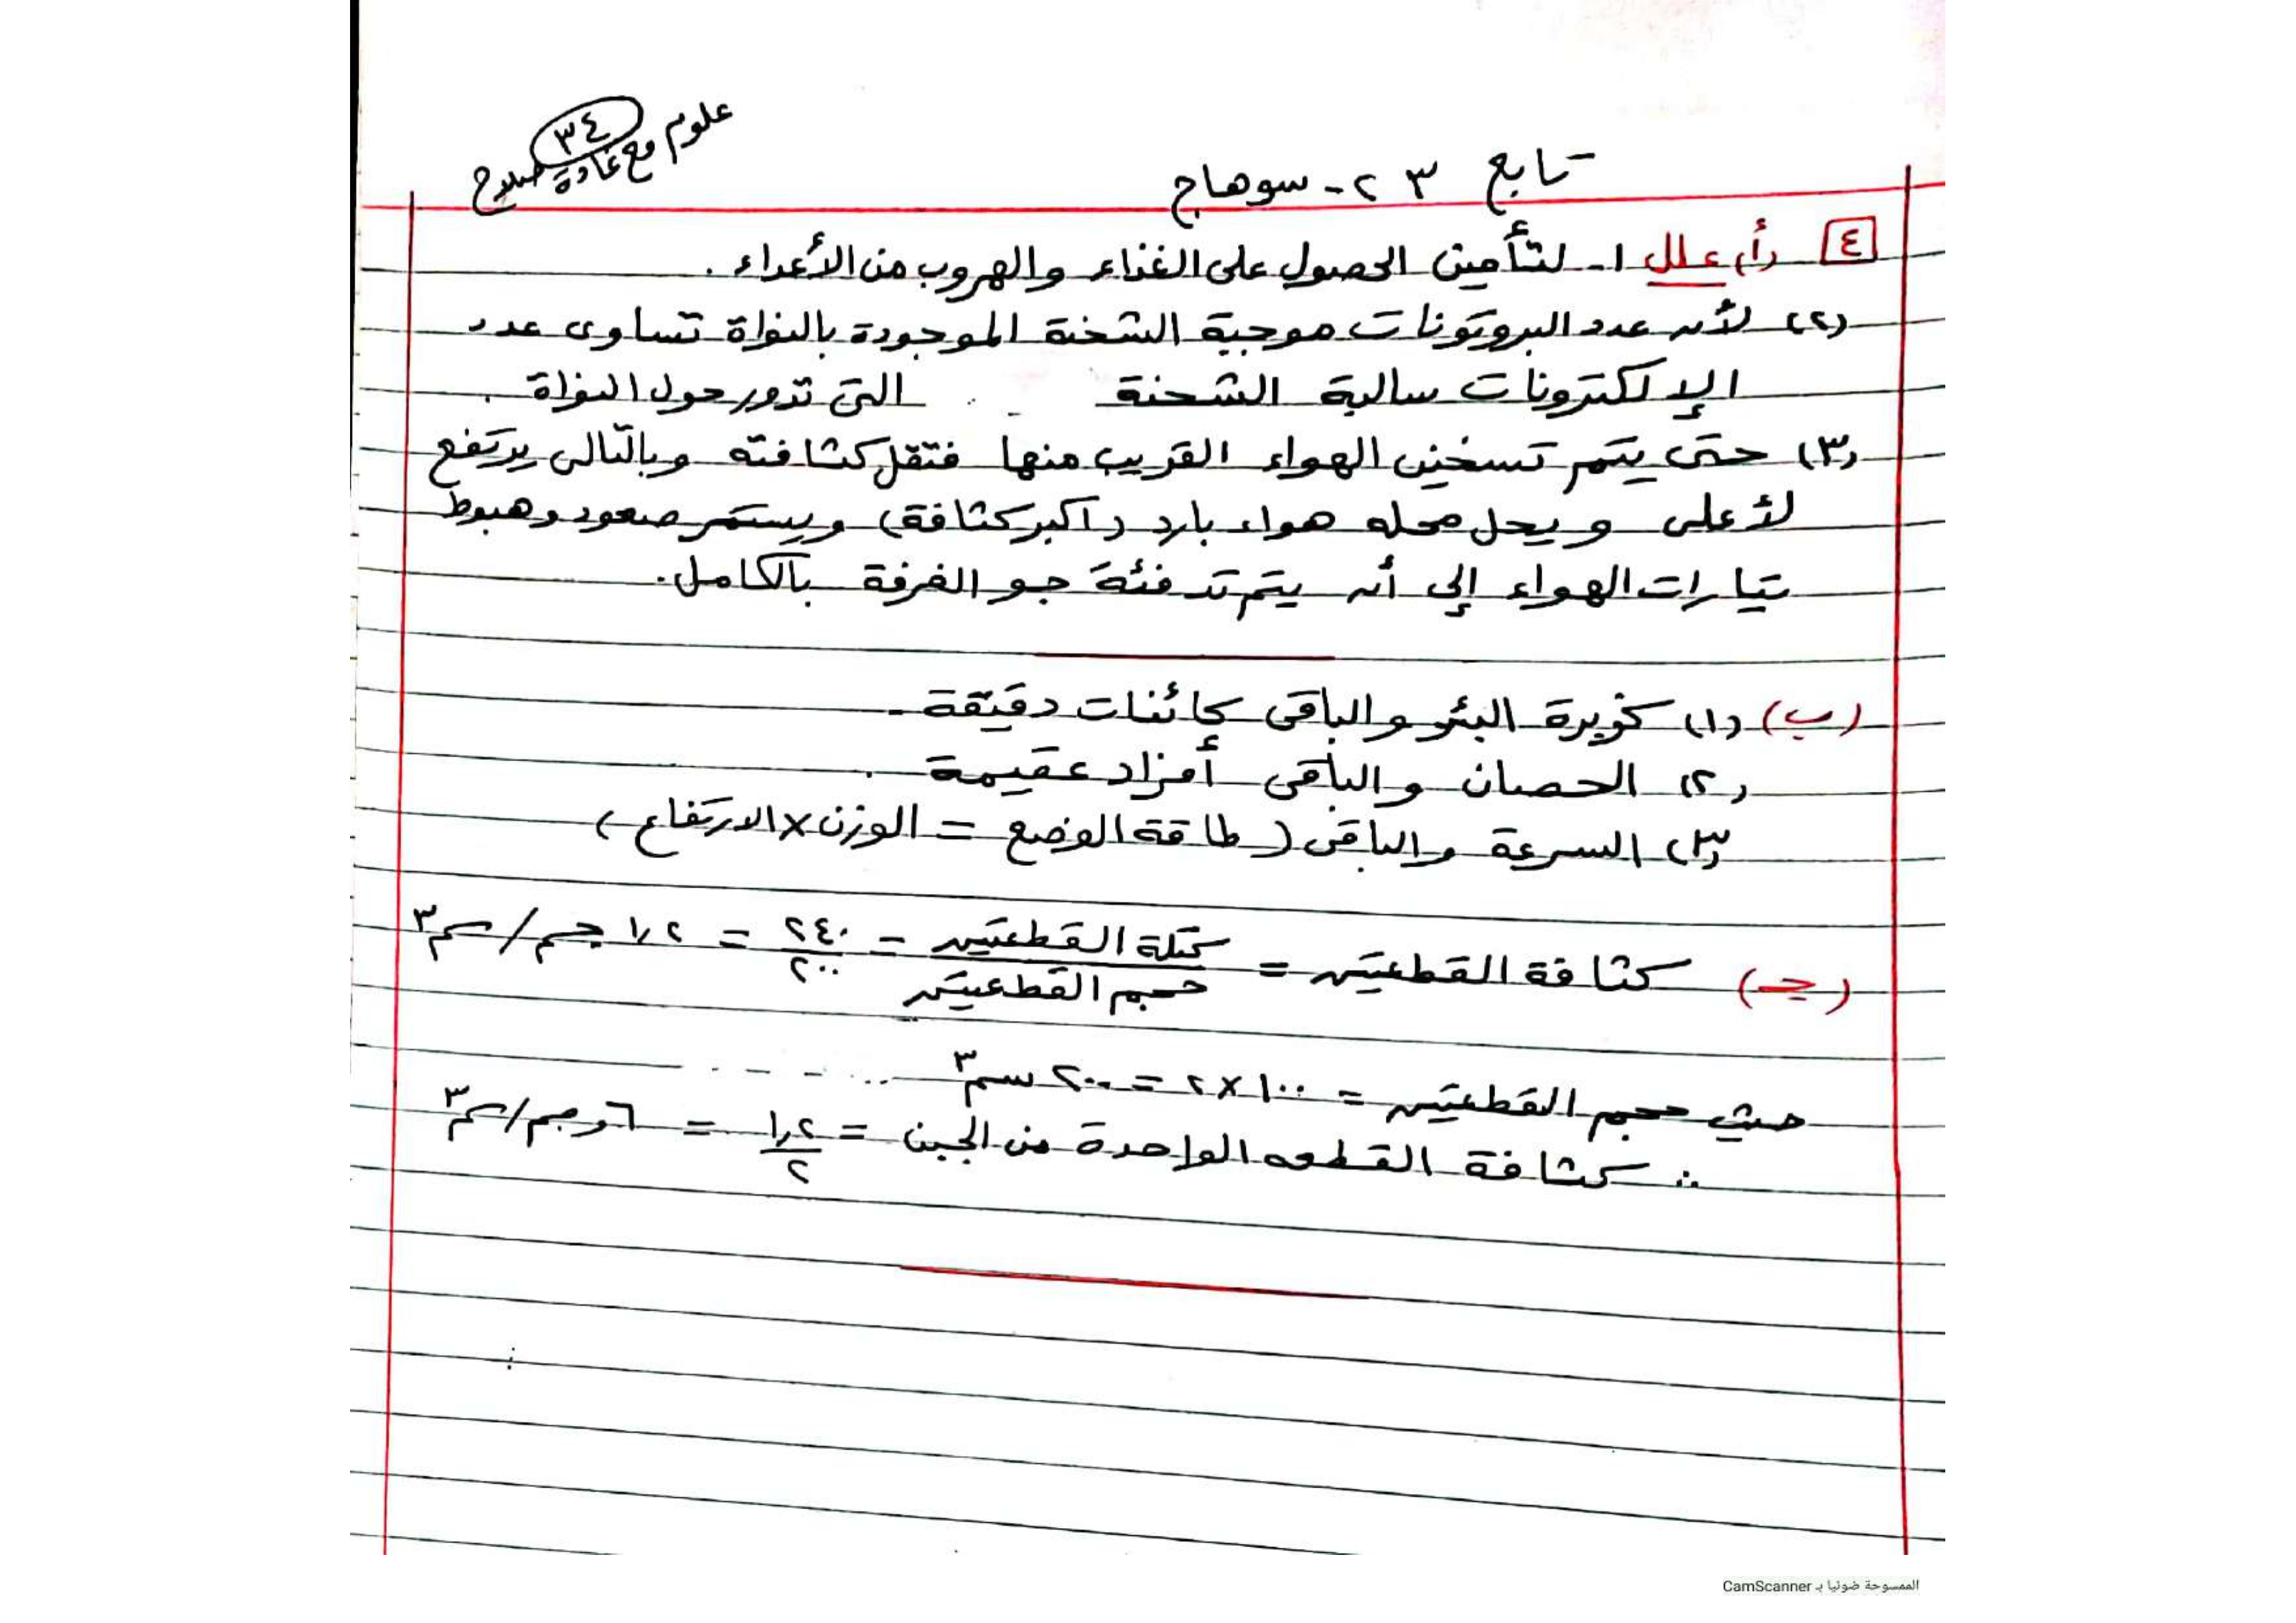 علوم مع غادة صلاح
٣٤
تابع ٢٣ - سوهاج
٤ (أ) علل ١- لتأمين الحصول على الغذاء والهروب من الأعداء .
(٢) لأن عدد البروتونات موجبة الشحنة الموجودة بالنواة تساوى عدد
الإلكترونات سالبة الشحنة التى تدور حول النواة .
(٣) حتى يتم تسخين الهواء القريب منها فتقل كثافته وبالتالى يرتفع
لأعلى ويحل محله هواء بارد (أكبر كثافة) ويستمر صعود وهبوط
تيارات الهواء إلى أن يتم تدفئة جو الغرفة بالكامل.
(ب) (١) كزبرة البئر والباقى كائنات دقيقة .
(٢) الحصان والباقى أفراد عقيمة .
(٣) السرعة والباقى (طاقة الوضع = الوزن × الارتفاع)
(جـ) كثافة القطعتين = كتلة القطعتين / حجم القطعتين = ٢٤٠ / ٢٠٠ = ١,٢ جم/سم٣
حيث حجم القطعتين = ١٠٠ × ٢ = ٢٠٠ سم٣
∴ كثافة القطعه الواحدة من الجبن = ١,٢ / ٢ = ٦, جم/سم٣
الممسوحة ضوئيا بـ CamScanner